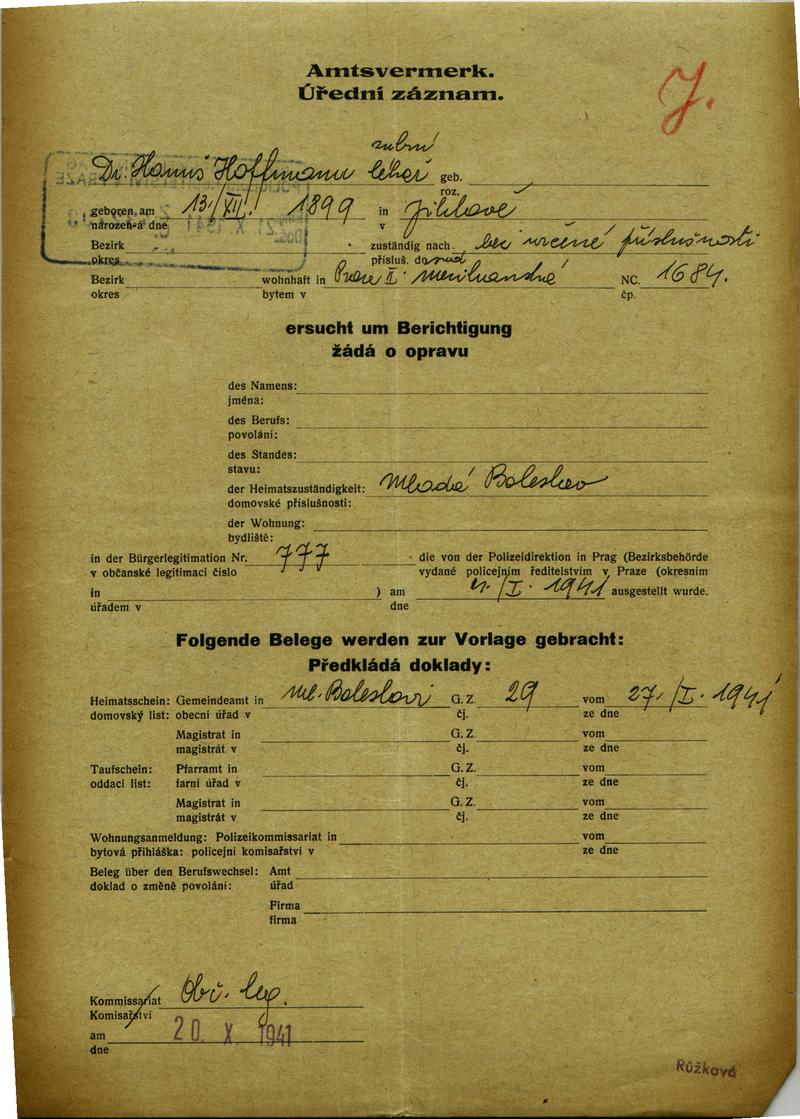 Amtsvermerk.
Úřední záznam.
J.
zubní
Dr. Hanuš Hoffmann lékař geb.
roz.
geboren am 13./XII. 1899 in Jílově
narozen-á dne v
Bezirk zuständig nach bez určené příslušnosti
okres přísluš. do
Bezirk wohnhaft in Praze II. NC. 1684.
okres bytem v čp.
ersucht um Berichtigung
žádá o opravu
des Namens:
jména:
des Berufs:
povolání:
des Standes:
stavu:
der Heimatszuständigkeit: Mladá Boleslav
domovské příslušnosti:
der Wohnung:
bydliště:
in der Bürgerlegitimation Nr. 777 die von der Polizeidirektion in Prag (Bezirksbehörde
v občanské legitimaci číslo vydané policejním ředitelstvím v Praze (okresním
in ) am /I. 1941 ausgestellt wurde.
úřadem v dne
Folgende Belege werden zur Vorlage gebracht:
Předkládá doklady:
Heimatsschein: Gemeindeamt in Ml. Boleslavi G. Z. 29 vom 27./I. 1941
domovský list: obecní úřad v čj. ze dne
Magistrat in G. Z. vom
magistrát v čj. ze dne
Taufschein: Pfarramt in G. Z. vom
oddací list: farní úřad v čj. ze dne
Magistrat in G. Z. vom
magistrát v čj. ze dne
Wohnungsanmeldung: Polizeikommissariat in vom
bytová přihláška: policejní komisařství v ze dne
Beleg über den Berufswechsel: Amt
doklad o změně povolání: úřad
Firma
firma
Kommissariat Obč. leg.
Komisařství
am 20. X. 1941
dne
Růžková